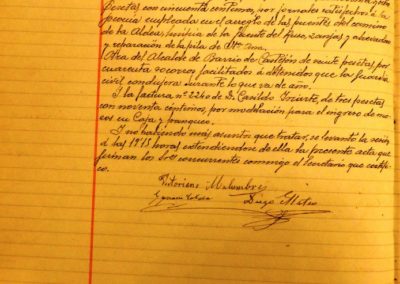 pesetas con cincuenta céntimos, por jornales satisfechos a la
empleada en el arreglo de las puentes del camino
de la Aldea, limpia de la fuente del zanjas y
y reparación de la pila de Ana.
Otra del Alcalde de Barrio de Castejón de veinte pesetas, por
cuarenta socorros facilitados a detenidos que la Guardia
civil condujera durante lo que va de año.
Y la factura nº 2240 de D. Iriarte, de tres pesetas
con noventa céntimos, por modelación para el ingreso de mo-
zos en Caja y franqueo.
Y no habiendo más asuntos que tratar, se levantó la sesión
a las 19'15 horas extendiéndose de ella la presente acta que
firman los Sres concurrentes conmigo el Secretario que certifi-
co.
Victoriano Malumbres
Diego Mateo